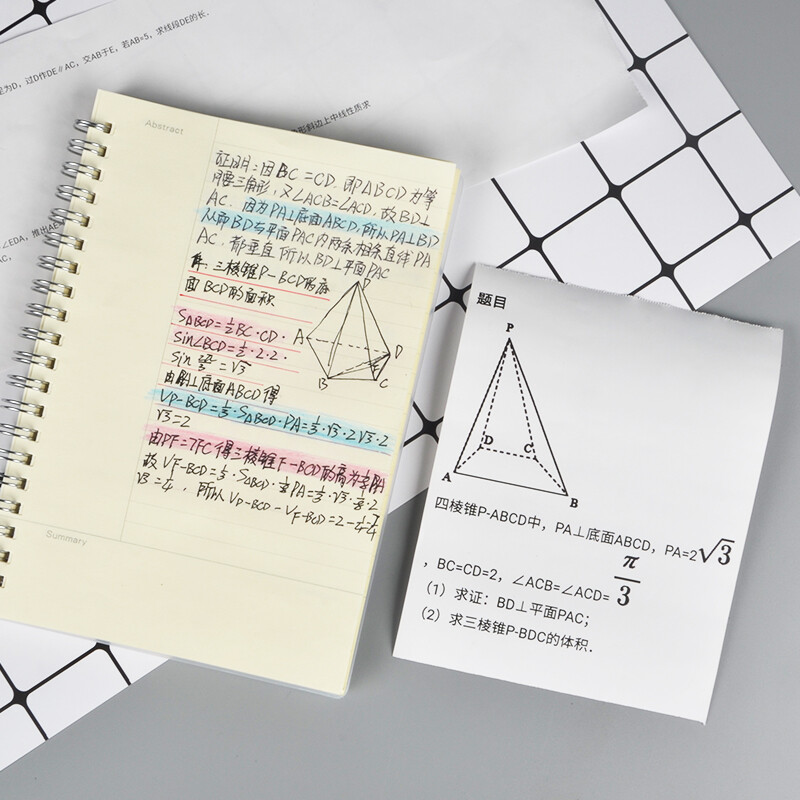 足为D，过D作DE∥AC，交AB于E，若AB=5，求线段DE的长．
形斜边上中线性质求
∠EDA，推出AE
Abstract
证明：因BC=CD．即△BCD为等
腰三角形，又∠ACB=∠ACD，故BD⊥
AC．因为PA⊥底面ABCD，所以PA⊥BD
从而BD与平面PAC内两条相交直线PA
AC．都垂直所以BD⊥平面PAC
解：三棱锥P-BCD的底
面BCD的面积
S△BCD=½BC·CD·
Sin∠BCD=½·2·2·
Sin 2π/3=√3
由PA⊥底面ABCD得
VP-BCD=⅓·S△BCD·PA=⅓·√3·2√3·2
√3=2
由PF=7FC得三棱锥F-BCD的高为⅛PA
故VF-BCD=⅓·S△BCD·⅛PA=⅓·√3·⅛·2
√3=¼，所以VP-BCD-VF-BCD=2-¼=7/4
P
A
D
B
C
Summary
题目
P
D
C
A
B
四棱锥P-ABCD中，PA⊥底面ABCD，PA=2√3
，BC=CD=2，∠ACB=∠ACD=π/3
（1）求证：BD⊥平面PAC；
（2）求三棱锥P-BDC的体积．